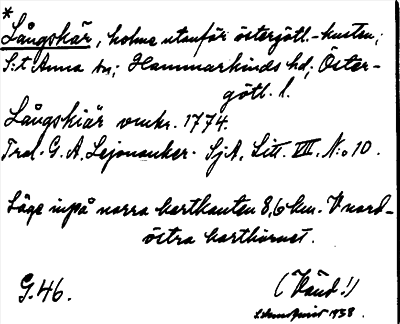 *
Långskär, holme utanför östergötl.-kusten;
S:t Anna sn; Hammarkinds hd; Öster-
götl. l.
Långskiär omkr. 1774.
Trol. G. A. Lejonanker. SjA, Litt. VIII. N:o 10.
Läge inpå norra kartkanten 8,6 km. V nord-
östra karthörnet.
G.46.
(Vänd!)
1938